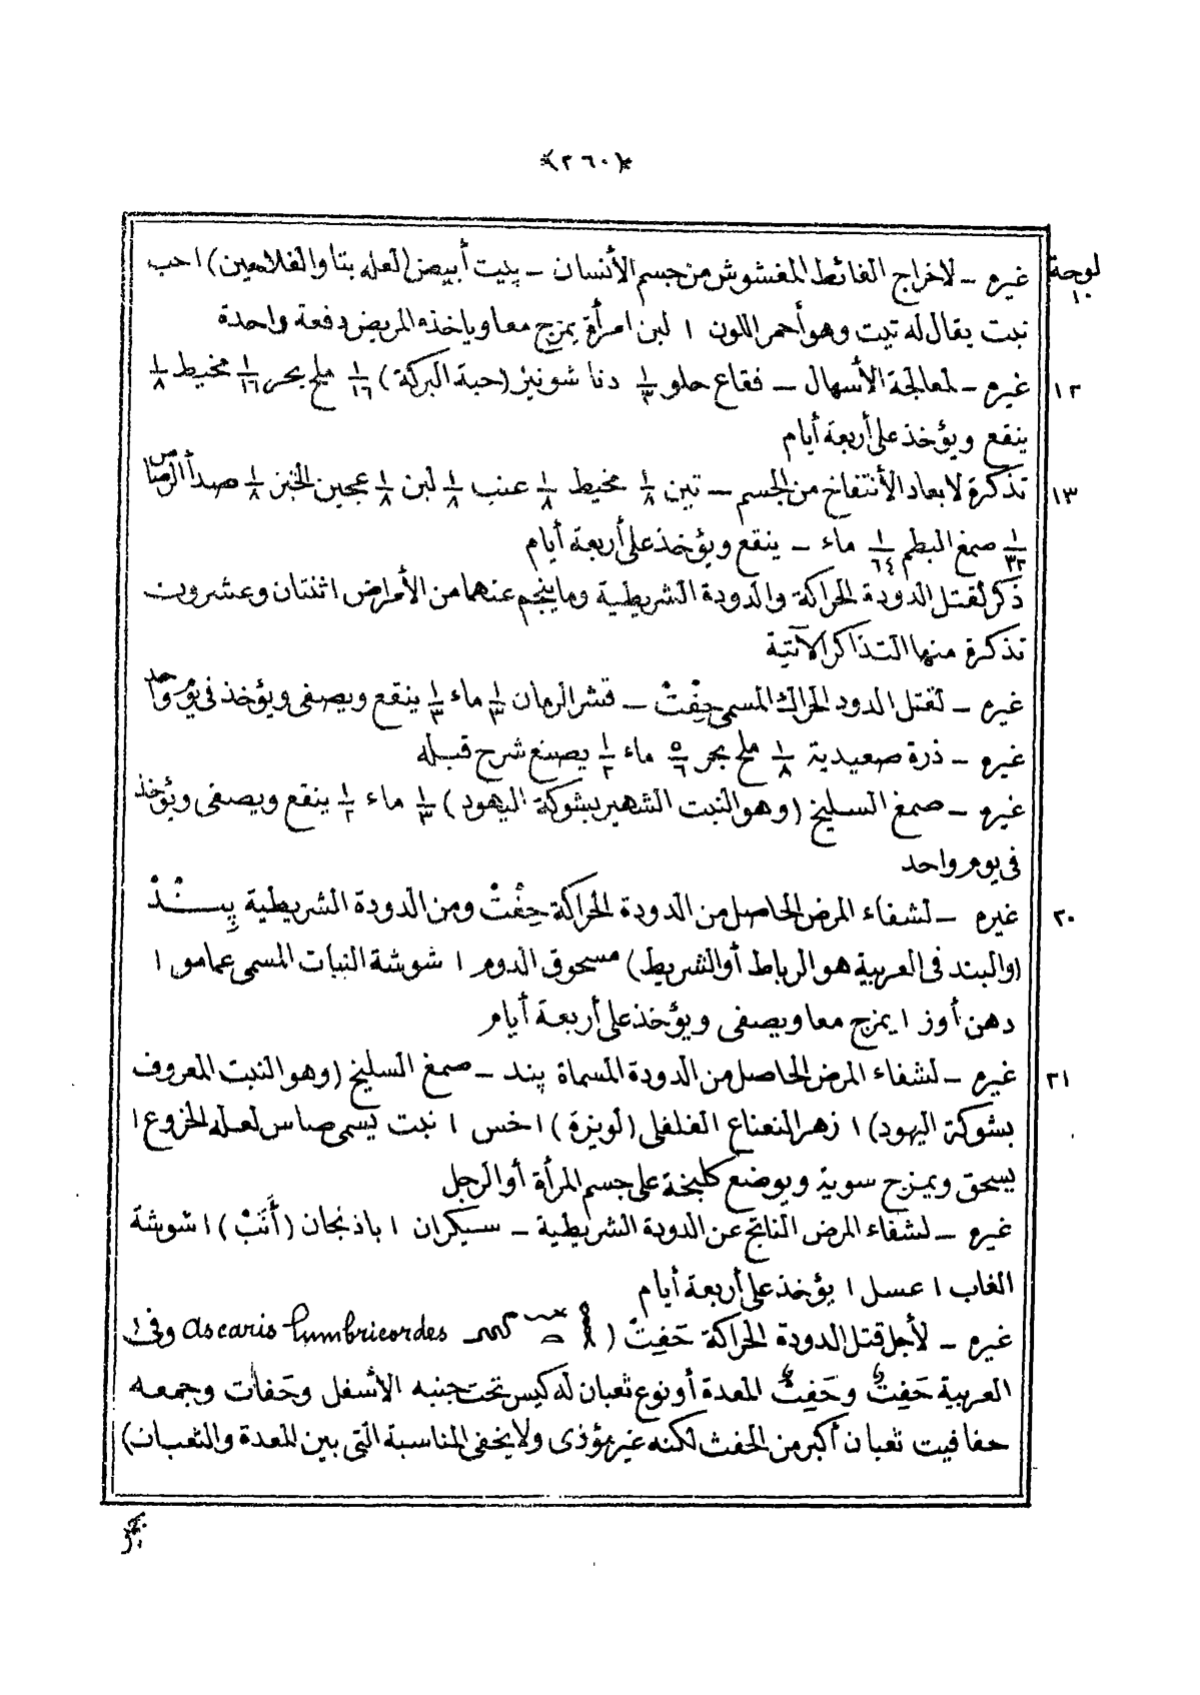 ﴿٢٦٠﴾
لوحة ١٠
غيره – لاخراج الغائط المغشوش من جسم الأنسان – پيت أبيض (لعله بتاو الفلاحين) ١ حب
نبت يقال له تپت وهو أحمر اللون ١ لبن امرأة يمزج معا وياخذه المريض دفعة واحدة
١٢ غيره – لمعالجة الأسهال – فقاع حلو ١/٣ دنا شونيز (حبة البركة) ١/١٦ ملح بحر ١/١٦ مخيط ١/٨
ينقع ويؤخذ على أربعة أيام
١٣ تذكرة لابعاد الأنتفاخ من الجسم – تين ١/٨ مخيط ١/٨ عنب ١/٨ لبن ١/٨ عجين الخبز ١/٨ صدأ الرصاص
١/٣٢ صمغ البطم ١/٦٤ ماء – ينقع ويؤخذ على أربعة أيام
ذكر لقتل الدودة الحراكة والدودة الشريطية وما ينجم عنهما من الأمراض اثنتان وعشرون
تذكرة منها التذاكر الآتية
غيره – لقتل الدود الحراك المسمى حِفْتْ – قشر الرمان ١/٣ ماء ١/٣ ينقع ويصفى ويؤخذ فى يوم واحد
غيره – ذرة صعيدية ١/٨ ملح بحر ٥/٦ ماء ١/٢ يصنع شرح قبله
غيره – صمغ السليخ (وهو النبت الشهير بشوكة اليهود) ١/٣ ماء ١/٢ ينقع ويصفى ويؤخذ
فى يوم واحد
٢٠ غيره – لشفاء المرض الحاصل من الدودة الحراكة حِفْتْ ومن الدودة الشريطية پِنْدْ
(والبند فى العربية هو الرباط أو الشريط) مسحوق الدوم ١ شوشة النبات المسمى عمامو ١
دهن أوز ١ يمزج معا ويصفى ويؤخذ على أربعة أيام
٢١ غيره – لشفاء المرض الحاصل من الدودة المسماة پند – صمغ السليخ (وهو النبت المعروف
بشوكة اليهود) ١ زهر النعناع الفلفلى (لويزة) ١ خس ١ نبت يسمى صاس لعله الخروع ١
يسحق ويمزج سوية ويوضع كلبخة على جسم المرأة أو الرجل
غيره – لشفاء المرض الناتج عن الدودة الشريطية – سيكران ١ باذنجان (أَنَبْ) ١ شوشة
الغاب ١ عسل ١ يؤخذ على أربعة أيام
غيره – لأجل قتل الدودة الحراكة حَفِتْ ( Ascaris lumbricordes وفى
العربية حَفِثْ وحَفِثْ المعدة أو نوع ثعبان له كيس تحت جنبه الأسفل وحَفاث وجمعه
حفافيت ثعبان أكبر من الحفث لكنه غير مؤذى ولا يخفى المناسبة التى بين المعدة والثعبان)